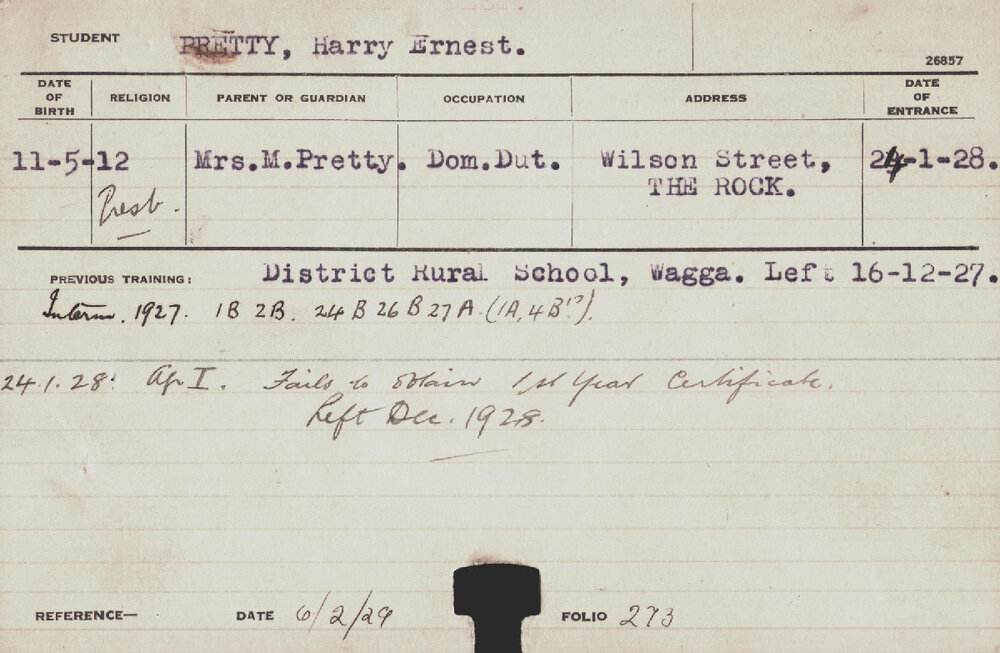 STUDENT PRETTY, Harry Ernest.
26857
DATE OF BIRTH RELIGION PARENT OR GUARDIAN OCCUPATION ADDRESS DATE OF ENTRANCE
11-5-12 Mrs.M.Pretty. Dom.Dut. Wilson Street, 24-1-28.
Presb. THE ROCK.
PREVIOUS TRAINING: District Rural School, Wagga. Left 16-12-27.
Interm. 1927. 1B 2B. 24B 26B 27A (1A, 4B!?).
24.1.28. Ap I. Fails to obtain 1st Year Certificate.
Left Dec. 1928.
REFERENCE— DATE 6/2/29 FOLIO 273